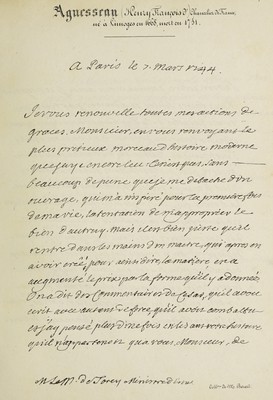 Aguesseau (Henry François d') Chancelier de France
né à Limoges en 1668, mort en 1751.
A Paris le 7. mars 1744
Je vous renouvelle toutes mes actions de
graces, Monsieur, en vous renvoyant le
plus précieux morceau d'histoire moderne
que j'aye encore lû. Ce n'est pas sans
beaucoup de peine que je me detache d'un
ouvrage, qui m'a inspiré pour la premiere fois
de ma vie, la tentation de m'approprier le
bien d'autruy. Mais il est bien juste qu'il
rentre dans les mains d'un maitre, qui apres en
avoir créé, pour ainsi dire, la matiere en a
augmenté le prix par la forme qu'il y a donnée
On a dit des Commentaires de Cesar, qu'il avoit
ecrit avec autant de force, qu'il avoit combattu
et j'ay pensé plus d'une fois en lisant votre histoire
qu'il n'appartenoit qu'a vous, Monsieur, de
M. le M. de Torcy Ministre d'Etat